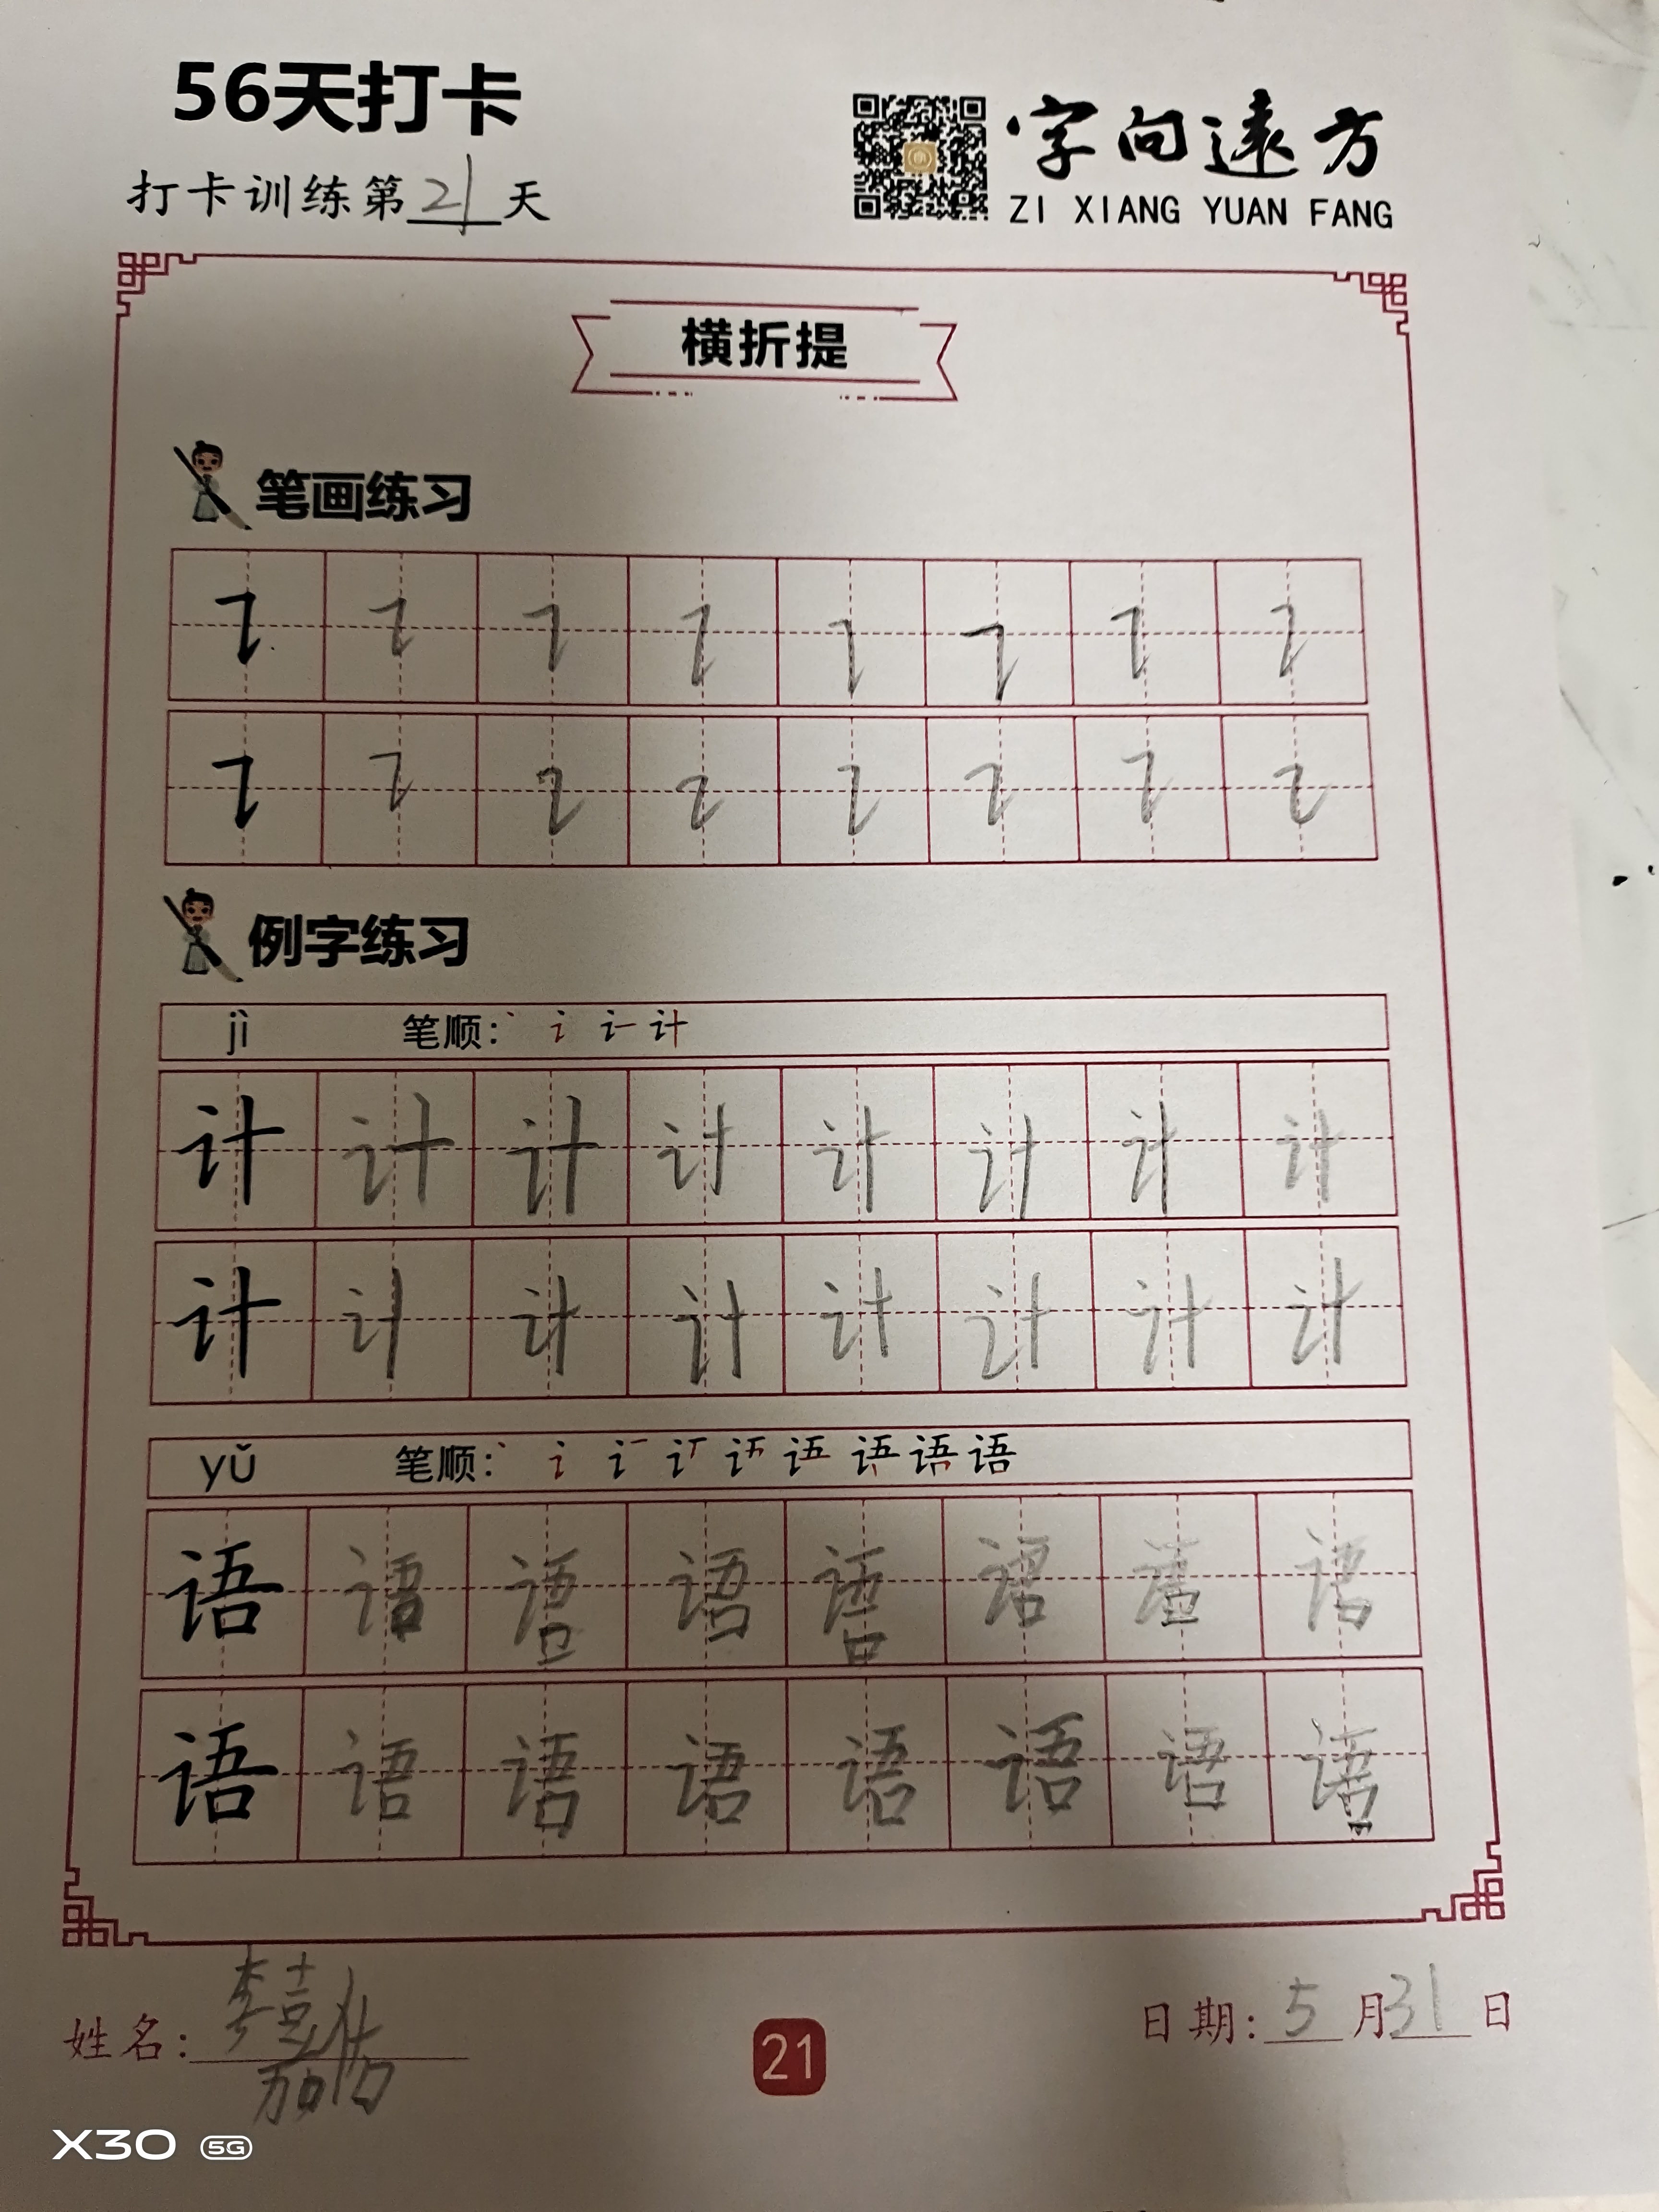 56天打卡
字向远方
打卡训练第21天
ZI XIANG YUAN FANG
横折提
笔画练习
例字练习
jì 笔顺:
计 计 计 计 计 计 计 计
计 计 计 计 计 计 计 计
yǔ 笔顺: 语
语 语 语 语 语 语 语 语
语 语 语 语 语 语 语 语
姓名: 李嘉
日期: 5月31日
21
X30 5G